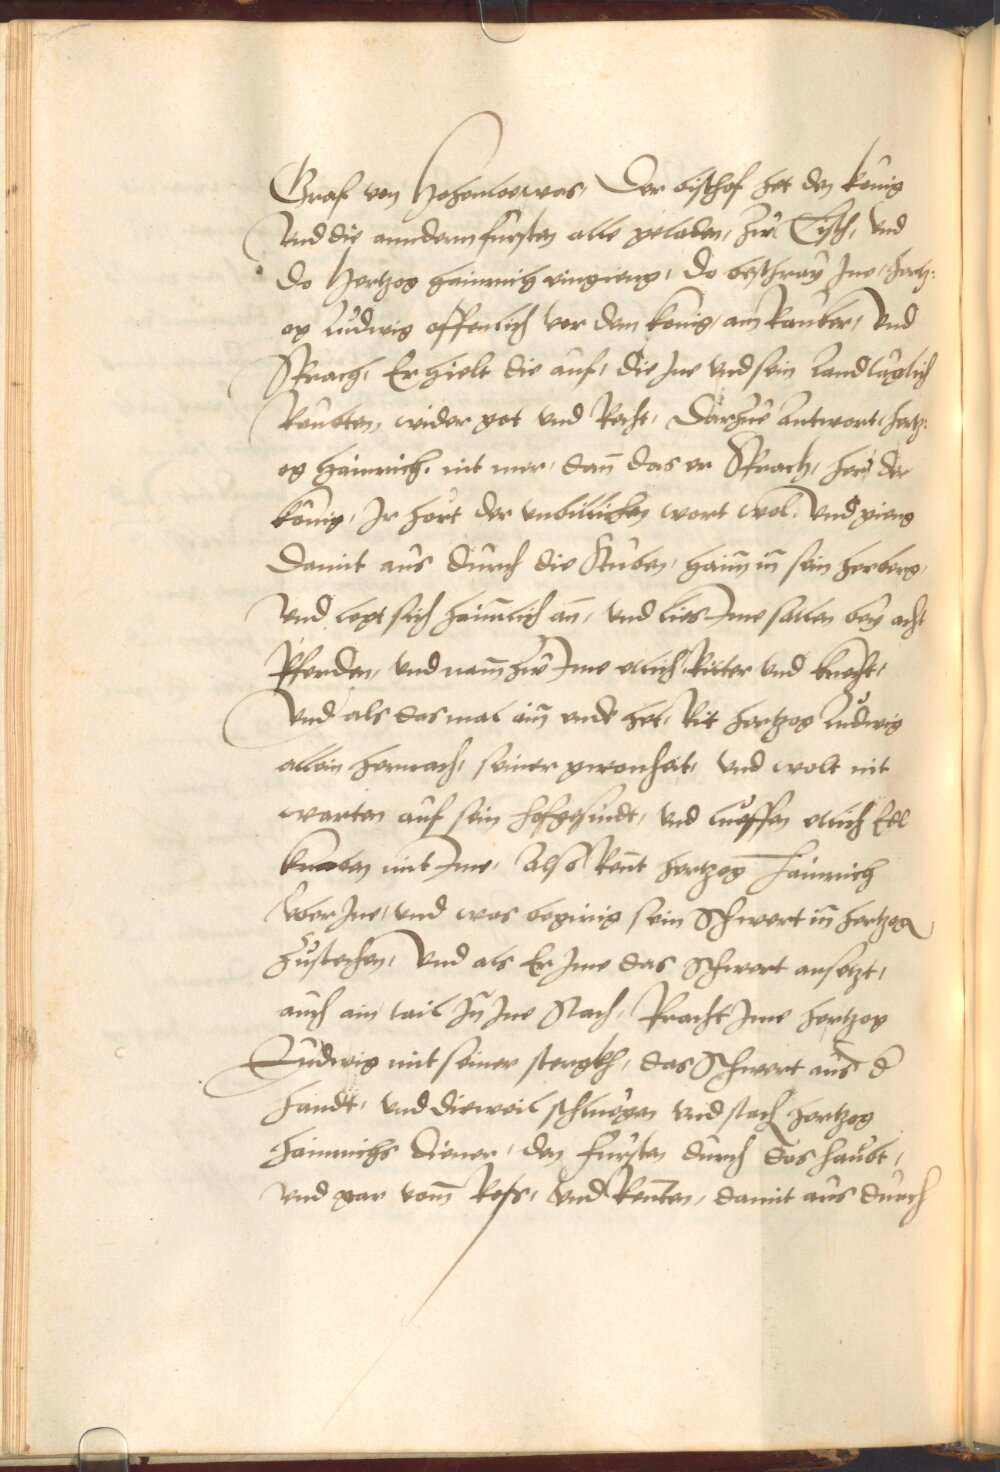 Graf von Hohenloe was, Der bischof het den könig
Vnd die anndern fürsten alle geladen, zw Tisch, vnd
do Hertzog hainrich eingieng, do beschray Jne, hertz:
og Ludwig offenlich vor dem könig, ain Rauber, Vnd
Sprach, Er hielt die auf, die Jne vnd sein Land täglich
Raubten, wider got vnd Recht, Darzue antwort, hertz:
og Hainrich, nit mer, dan̄ das er Sprach, her der
könig, Jr hört der vnbillichen wort wol, Vnd gieng
Damit aus durch die Stuben, haim̄ in̄ sein herberg,
Vnd legt sich haimlich an̄, vnd lies Jme satlen bey acht
Pferden, vnd nam̄ zw Jme etlich Ritter vnd knecht,
Vnd als das mal ain̄ ende het, Rit hertzog Ludwig
allein hernach, seiner gwonheit, vnd wolt nit
warten auf sein hofgesindt, vnd lueffen etlich Edl
knaben mit Jme, Also Rent hertzog Hainrich
vber Jne, vnd was begirig sein Schwert in̄ hertzog
zustechen, Vnd als Er Jme das Schwert ansetzt,
auch ain tail Jn̄ Jne Stach, Pracht Jme hertzog
Ludwig mit seiner stergkh, das Schwert aus d
handt, vnd dieweil schluegen vnd stach hertzog
Hainrichs diener, den fürsten durch das haubt,
vnd gar vom̄ Ross, vnd Renten, damit aus durch